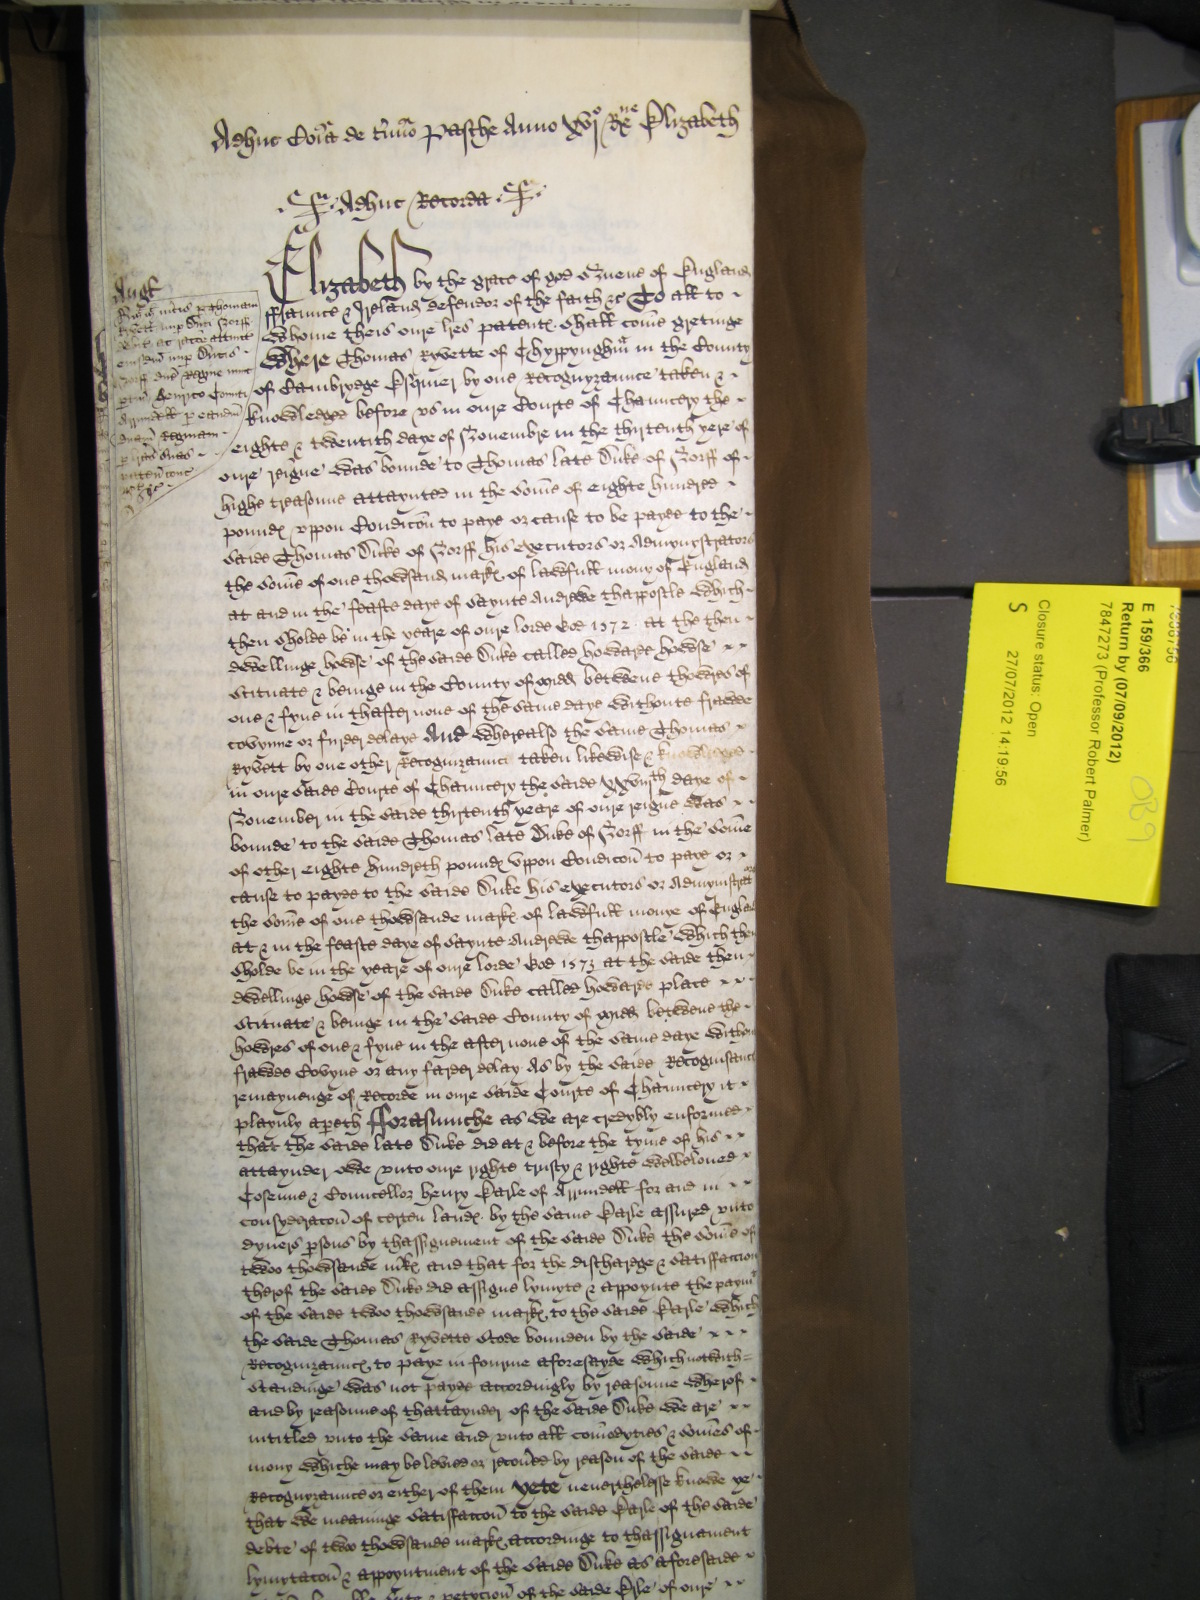 Adhuc Coĩa de tĩmo Pasche Anno xvjo Rne Elizabeth
Adhuc Recorda
Elizabeth by the grace of god Quene of England
ffraunce & Ireland defendor of the faith &c To all to
whome theis oure lres patentx shall come gretinge
Where Thomas Ryvette of Chyppynghm in the County
of Cambrydge Esquier by one Recognyzaunce taken &
knowledged before vs in oure Courte of Chauncery the
eighte & twentith daye of Nouembre in the thirtenth yere of
oure reigne was bounde to Thomas late Duke of Norff of
highe treasonne attaynted in the some of eighte hundred
poundx vppon Condicon to paye or cause to be payde to the
saide Thomas Duke of Norff his executors or Admynystrators
the some of one thowsand markx of lawfull mony of England
at and in the feaste daye of Saynte Andrewe thappostle which
then sholde be in the yeare of oure lorde God 1572 at the then
dwellinge howse of the saide Duke called howarde howse
scituate & beinge in the County of Midd betwene thowres of
one & fyue in thafter none of the same daye withoute frawde
covynne or furder delaye And wherealso the same Thomas
Ryvett by one other Recognizaunce taken likewise & knowledged
in oure saide Courte of Chauncery the saide xxviijth daye of
Nouember in the saide thirtenth yeare of oure reigne was
bounde to the saide Thomas late Duke of Norff in the some
of other eighte hundreth poundx vppon Condicon to paye or
cause to payde to the saide Duke his executors or Admynistrators
the some of one thowsande markx of lawfull monye of Englan
at & in the feaste daye of Saynte Andrewe thappostle which then
sholde be in the yeare of oure lorde God 1573 at the saide then
dwellinge howse of the saide Duke called howarde place
scituate & beinge in the saide County of Midd betwene the
howres of one & fyue in the after none of the same daye withou
frawde Covyne or any farder delay As by the saide Recognisaunc
remaynenge of Recorde in oure saide Courte of Chauncery it
playnly apereth fforasmuche as we are credybly enformed
that the saide late Duke did at & before the tyme of his
attaynder owe vnto oure righte trusty & righte welbeloued
Cosenne & Councellor henry Earle of Arrundell for and in
consyderacon of certen landx by the same Earle assured vnto
dyuers psons by thassignement of the saide Duke the some of
twoo thowsande mkx and that for the discharge & satisfaccion
therof the saide Duke did assigne lymyte & appoynte the paymt
of the saide twoo thowsande markx to the saide Earle which
the saide Thomas Ryvette stode bounden by the saide
Recognizauncx to paye in fourme aforesayde which notwith=
standinge was not payde accordingly by reasonne wherof
and by reasonne of thattaynder of the saide Duke we are
intitled vnto the same and vnto all comodyties & somes of
mony whiche may be levied or recoued by reason of the saide
Recognyzaunce or either of them yete neuerthelesse knowe ye
that we meaninge satisfaccon to the saide Earle of the saide
debte of twoo thowsande markx accordinge to thassignament
lymytacon & appoyntment of the saide Duke as aforesaide
& petycion of the saide Erle of oure
E 159/366
Return by (07/09/2012)
7847273 (Professor Robert Palmer)
Closure status: Open
S 27/07/2012 14:19:56